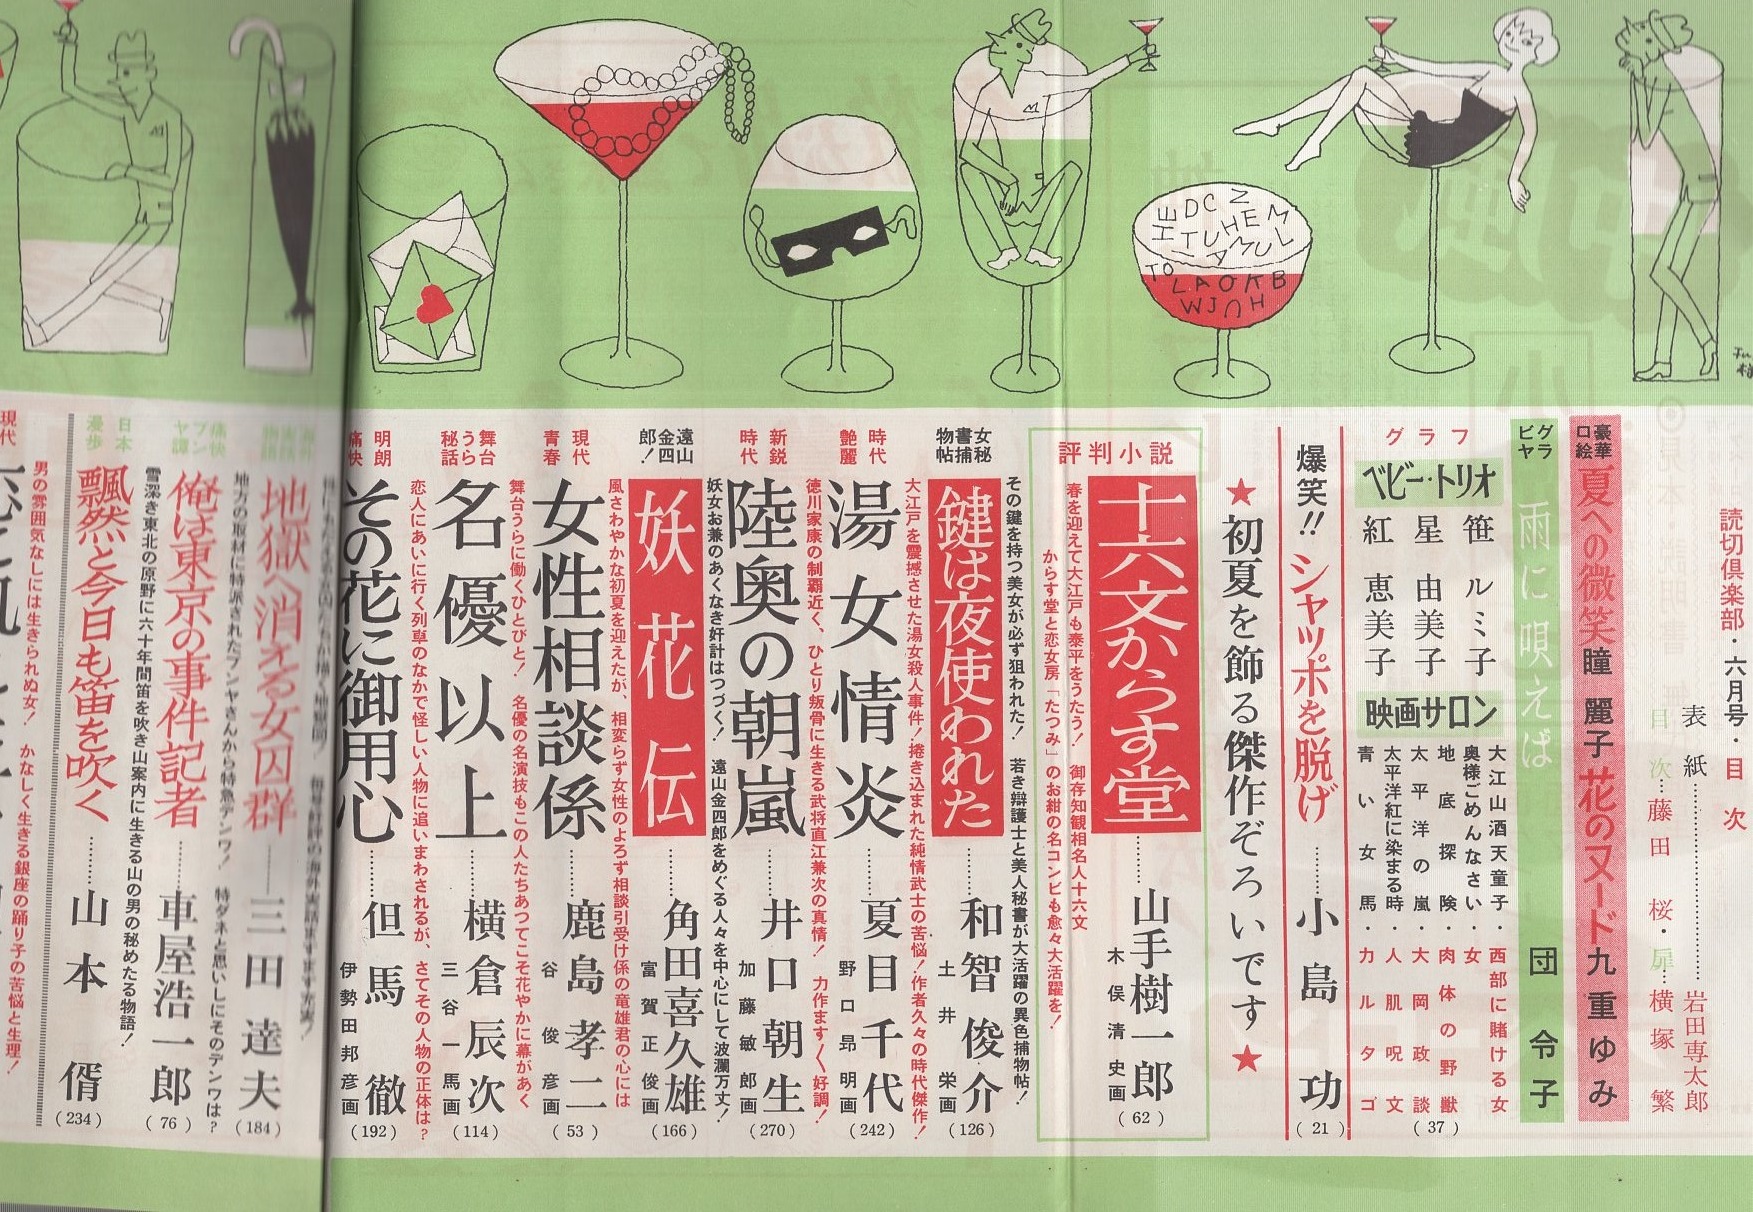 読切倶楽部・六月号・目次
表紙…………岩田専太郎
目次…藤田 桜・扉…横塚 繁
豪華口絵
夏への微笑 瞳 麗子
花のヌード 九重ゆみ
グラビヤ
雨に唄えば 団 令子
グラフ
ベビー・トリオ
笹 ルミ子
星 由美子
紅 恵美子
映画サロン
大江山酒天童子・西部に賭ける女
奥様ごめんなさい・女
地底探険・肉体の野獣
太平洋の嵐・大岡政談
太平洋紅に染まる時・人肌呪文
青い女馬・カルタゴ
(37)
爆笑!! シャッポを脱げ……小島 功
(21)
★初夏を飾る傑作ぞろいです★
評判小説
十六文からす堂………山手樹一郎
木俣清史画
(62)
春を迎えて大江戸も泰平をうたう! 御存知観相名人十六文
からす堂と恋女房「たつみ」のお紺の名コンビも愈々大活躍を!
その鍵を持つ美女が必ず狙われた! 若き辯護士と美人秘書が大活躍の異色捕物帖!
女秘書捕物帖
鍵は夜使われた……和智俊介
土井 栄画
(126)
大江戸を震撼させた湯女殺人事件!捲き込まれた純情武士の苦悩!作者久々の時代傑作!
時代艶麗
湯女情炎……夏目千代
野口昂明画
(242)
徳川家康の制覇近く、ひとり叛骨に生きる武将直江兼次の真情! 力作ますく好調!
新鋭時代
陸奥の朝嵐……井口朝生
加藤敏郎画
(270)
妖女お兼のあくなき奸計はつづく! 遠山金四郎をめぐる人々を中心にして波瀾万丈!
遠山金四郎!
妖花伝……角田喜久雄
富賀正俊画
(166)
風さわやかな初夏を迎えたが、相変らず女性のよろず相談引受け係の竜雄君の心には
現代青春
女性相談係……鹿島孝二
谷 俊彦画
(53)
舞台うらに働くひとびと! 名優の名演技もこの人たちあつてこそ花やかに幕があく
舞台うら秘話
名優以上……横倉辰次
三谷一馬画
(114)
恋人にあいに行く列車のなかで怪しい人物に追いまわされるが、さてその人物の正体は?
明朗痛快
その花に御用心……但馬 徹
伊勢田邦彦画
(192)
地獄へ消える女囚群――三田達夫
(184)
地方の取材に特派されたブンヤさんから特急デンワ! 特ダネと思いしにそのデンワは?
痛快ブンヤ譚
俺は東京の事件記者……車屋浩一郎
(76)
雪深き東北の原野に六十年間笛を吹き山案内に生きる山の男の秘めたる物語!
日本漫歩
飄然と今日も笛を吹く……山本 偦
(234)
男の雰囲気なしには生きられぬ女! かなしく生きる銀座の踊り子の苦悩と生理!
現代
HEDCZ